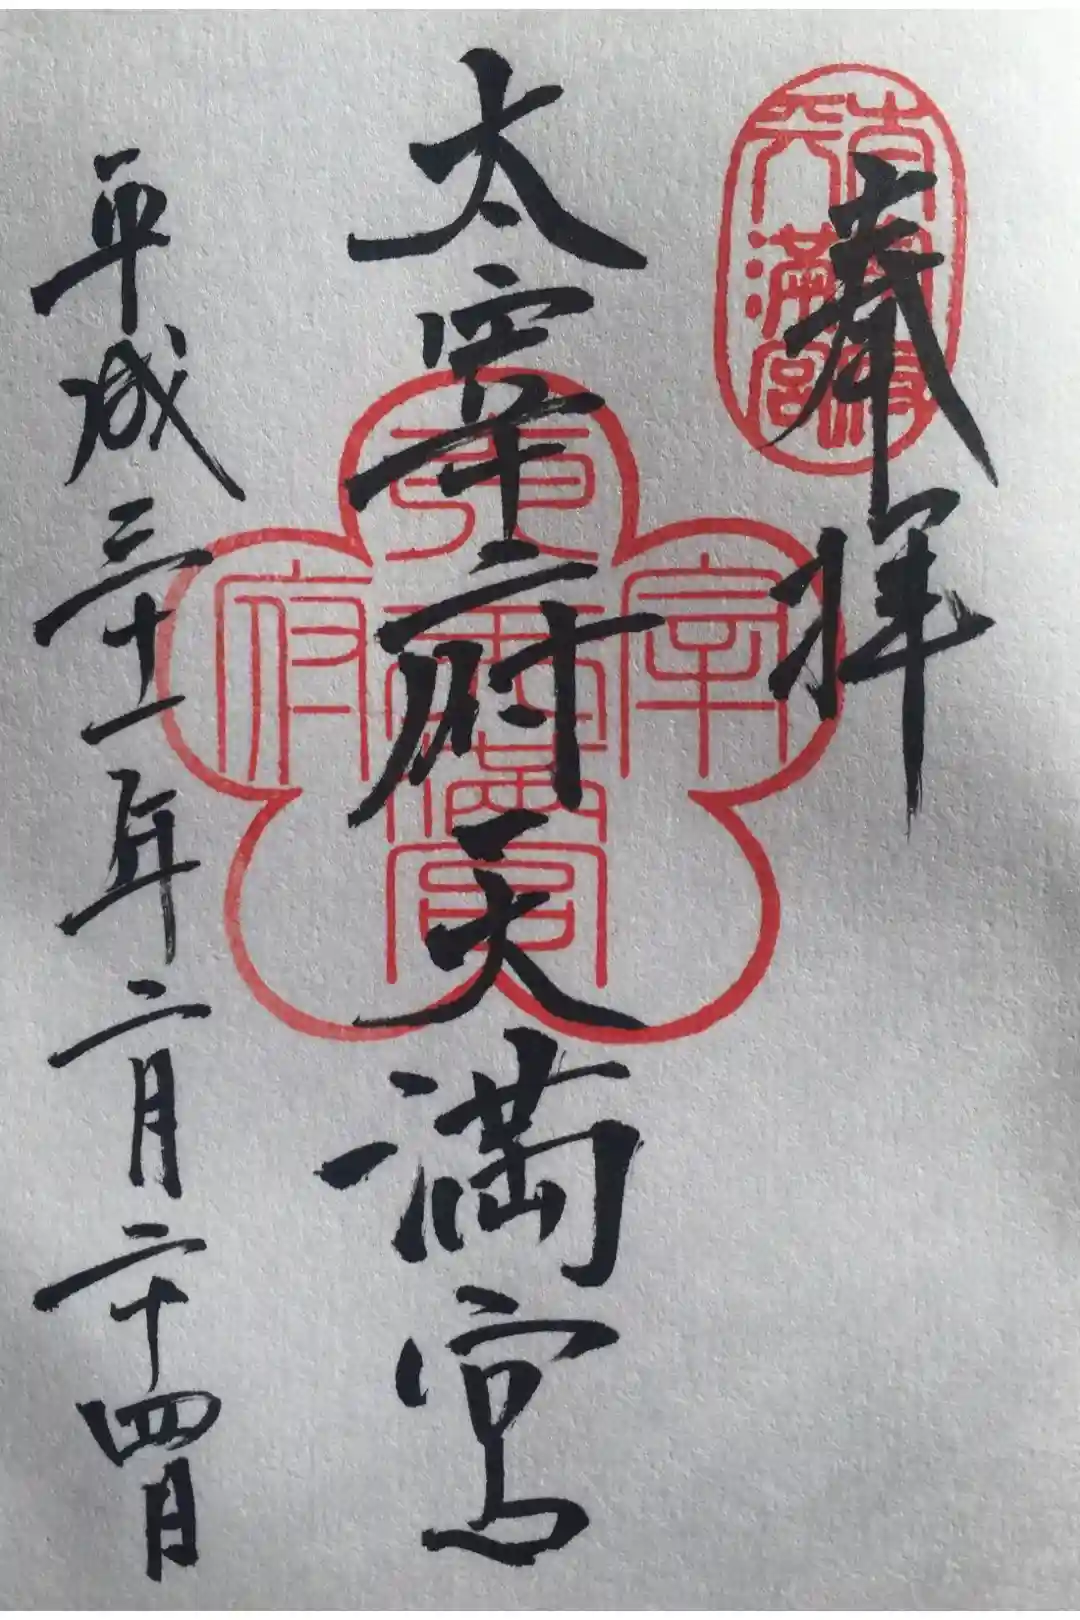 奉拝
太宰府
天満宮
太宰府天満宮
宰
府
満宮
平成三十一年二月二十四日